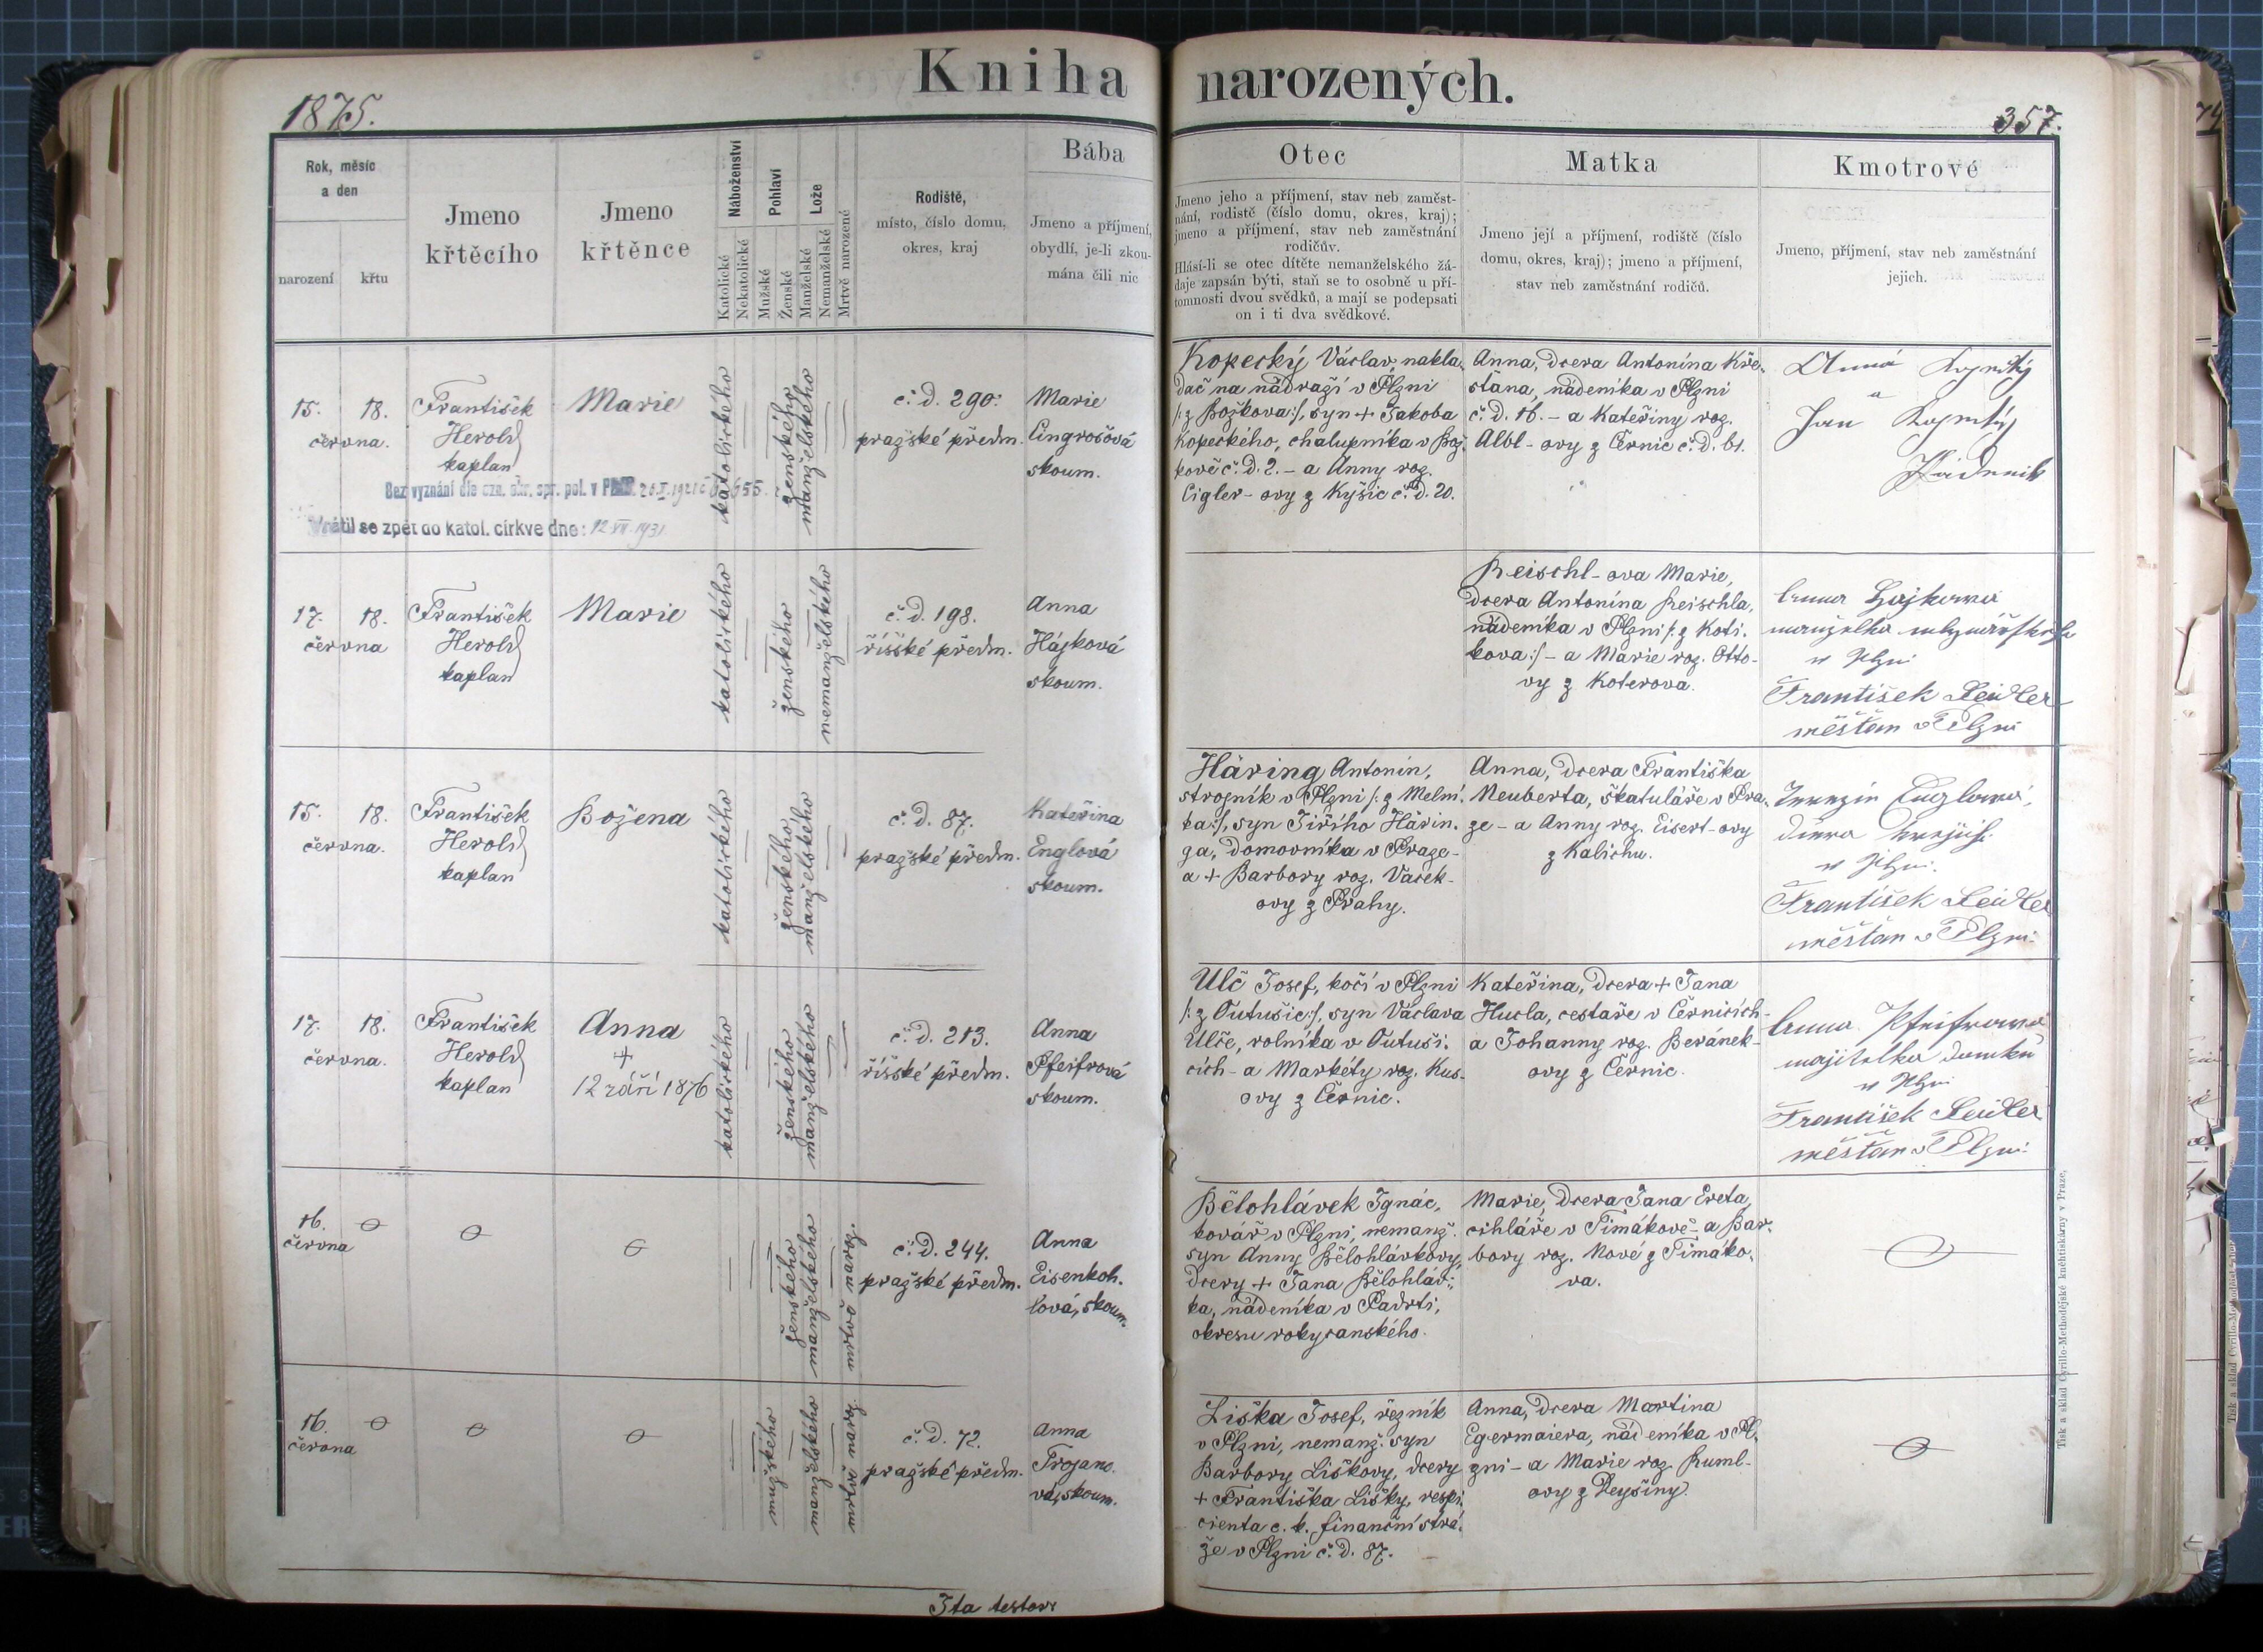 Kniha narozených.
1875.
357.
Rok, měsíc
a den
narození
křtu
Jmeno
křtěcího
Jmeno
křtěnce
Náboženství
Katolické
Nekatolické
Pohlaví
Mužské
Ženské
Lože
Manželské
Nemanželské
Mrtvě narozené
Rodiště,
místo, číslo domu,
okres, kraj
Bába
Jmeno a příjmení,
obydlí, je-li zkou-
mána čili nic
Otec
Jmeno jeho a příjmení, stav neb zaměst-
nání, rodistě (číslo domu, okres, kraj);
jmeno a příjmení, stav neb zaměstnání
rodičův.
Hlásí-li se otec dítěte nemanželského žá-
daje zapsán býti, staň se to osobně u pří-
tomnosti dvou svědků, a mají se podepsati
on i ti dva svědkové.
Matka
Jmeno její a příjmení, rodiště (číslo
domu, okres, kraj); jmeno a příjmení,
stav neb zaměstnání rodičů.
Kmotrové
Jmeno, příjmení, stav neb zaměstnání
jejich.
15. 18.
června.
František
Herold
kaplan
Marie
katolického
ženského
manželského
č. d. 290.
pražské předm.
Marie
Cingrošová
skoum.
Kopecký Václav, nakla-
dač na nádraží v Plzni
/: z Božkova :/, syn + Jakoba
Kopeckého, chalupníka v Bož-
kově č. d. 2. - a Anny roz.
Cigler - ovy z Kyšic č. d. 20.
Anna, dcera Antonína Kře-
sťana, nádeníka v Plzni
č. d. 16. - a Kateřiny roz.
Albl - ovy z Černic č. d. 61.
Anna
a
Jan
Bez vyznání dle ozn. okr. spr. pol. v
Vrátil se zpět do katol. církve dne: 12 VII 1931
17. 18.
června
František
Herold
kaplan
Marie
katolického
ženského
nemanželského
č. d. 198.
říšské předm.
Anna
Hájková
skoum.
Reischl - ova Marie,
dcera Antonína Reischla,
nádeníka v Plzni /: z Koti-
kova :/ - a Marie roz. Otto-
vy z Koterova.
Anna Hajkowa
manželka
w Plzni
František Seidler
měšťan v Plzni
15. 18.
června.
František
Herold
kaplan
Božena
katolického
ženského
manželského
č. d. 87.
pražské předm.
Kateřina
Englová
skoum.
Häring Antonín,
strojník v Plzni /: z Mělní-
ka :/, syn Jiřího Härin-
ga, domovníka v Praze -
a + Barbory roz. Vacek -
ovy z Prahy.
Anna, dcera Františka
Neuberta, škatuláře v Pra-
ze - a Anny roz. Eisert - ovy
z Kalichu.
Englowá,
w Plzni.
František Seidler
měšťan v Plzni
17. 18.
června.
František
Herold
kaplan
Anna
+
12 září 1876
katolického
ženského
manželského
č. d. 213.
říšské předm.
Anna
Pfeifrová
skoum.
Ulč Josef, kočí v Plzni
/: z Outušic :/, syn Václava
Ulče, rolníka v Outuši-
cích - a Markéty roz. Kus-
ovy z Černic.
Kateřina, dcera + Jana
Hucla, cestaře v Černicích -
a Johanny roz. Beránek -
ovy z Černic.
Anna Pfeifrowa
majitelka domku
w Plzni
František Seidler
měšťan v Plzni
16.
června
ženského
manželského
mrtvě naroz.
č. d. 244.
pražské předm.
Anna
Eisenkoh-
lová, skoum.
Bělohlávek Ignác,
kovář v Plzni, nemanž.
syn Anny Bělohlávkovy,
dcery + Jana Bělohláv-
ka, nádeníka v Padrti,
okresu rokycanského.
Marie, dcera Jana Ereta,
cihláře v Timákově - a Bar-
bory roz. Nové z Timáko-
va.
16.
června
mužského
manželského
mrtvě naroz.
č. d. 72.
pražské předm.
Anna
Trojano-
vá, skoum.
Liška Josef, řezník
v Plzni, nemanž. syn
Barbory Liškovy, dcery
+ Františka Lišky, respi-
cienta c. k. finanční strá-
že v Plzni č. d. 87.
Anna, dcera Martina
Egermaiera, nádeníka v Pl-
zni - a Marie roz. Ruml -
ovy z Deyšiny.
Ita testor:
Tisk a sklad Cyrillo-Methodějské kněhtiskárny v Praze.